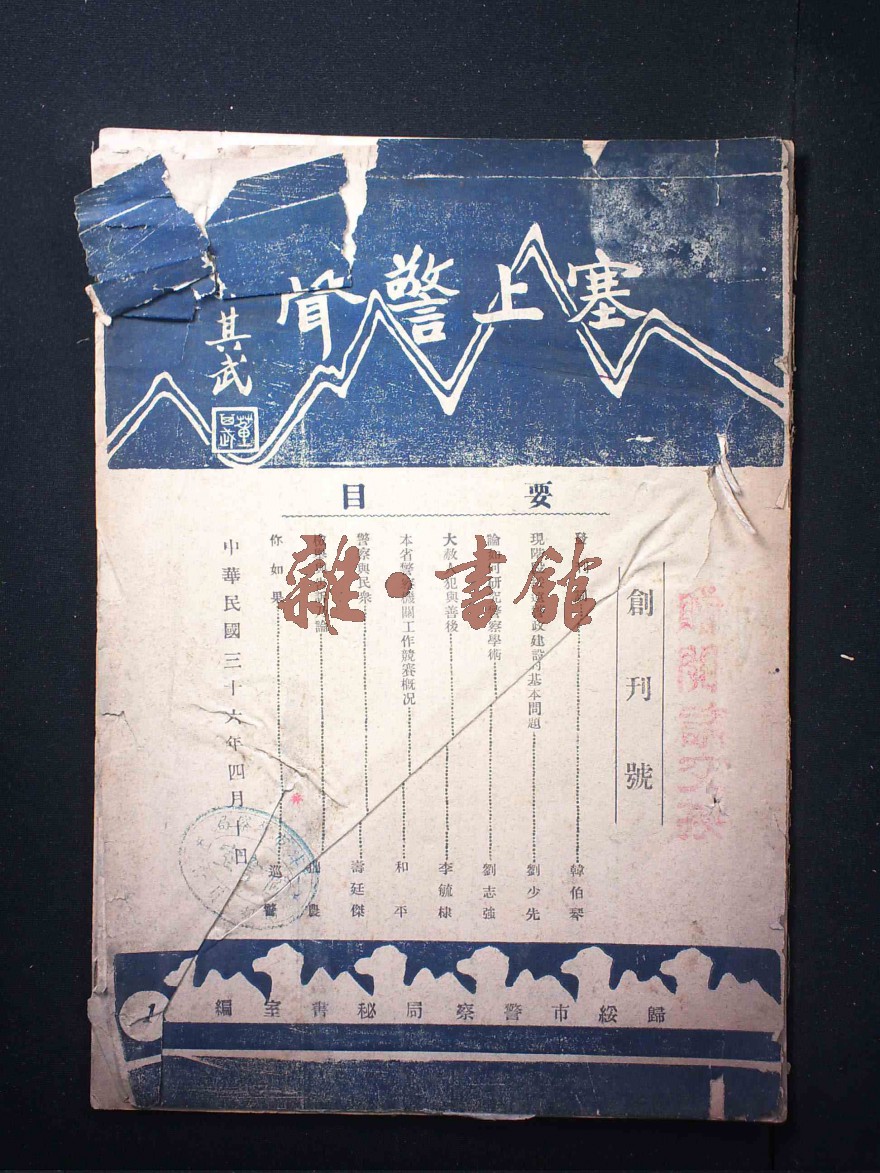 塞上警聲
其武
要目
創刊號
韓伯琴
現階 政建設 基本問題 劉少先
研究警察學術 劉志強
大赦 犯與善後 李毓棣
本省警察機關工作競賽概況 和平
警察與民衆 壽廷傑
論 農
你如果 巡警
中華民國三十六年四月十日
歸綏市警察局秘書室編
1
雜·書館